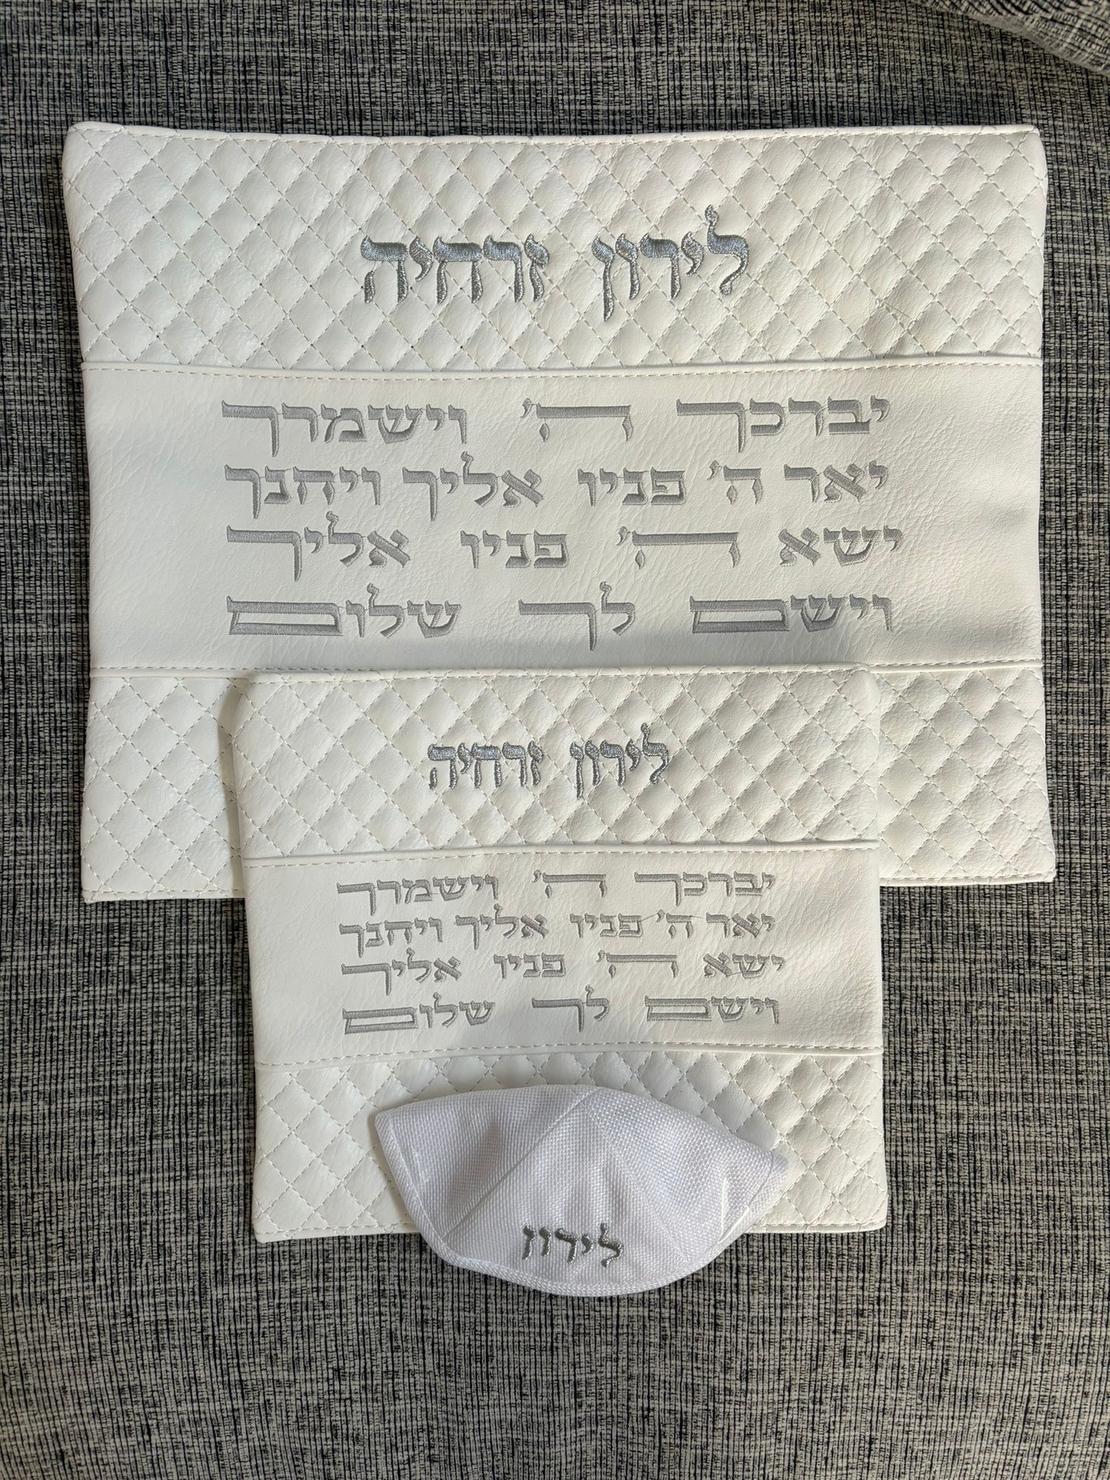 לירון זרחיה
יברכך ה' וישמרך
יאר ה' פניו אליך ויחנך
ישא ה' פניו אליך
וישם לך שלום
לירון זרחיה
יברכך ה' וישמרך
יאר ה' פניו אליך ויחנך
ישא ה' פניו אליך
וישם לך שלום
לירון